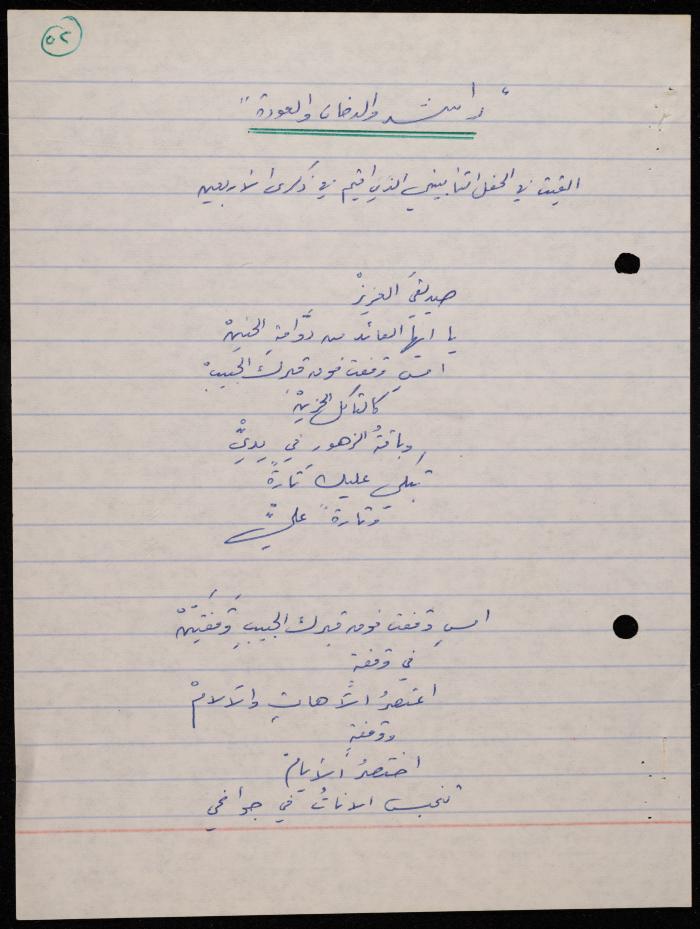 ٥٢
"راشد والدخان والعودة"
القيت في الحفل التأبيني الذي اقيم في ذكرى الاربعين
صديقيَ العزيزْ
يا ايها العائد من دوَّامةِ الحنينْ
امسِ وقفت فوق قبرك الحبيبْ
كالثاكل الحزينْ
وباقةُ الزهورِ في يديَّ
تبكي عليكَ تارةً
وتارةً عليَّ
امسِ وقفت فوق قبرك الحبيبِ وَقفَتَينْ
في وقفةٍ
اعتصرُ الآهاتِ والآلامْ
ووقفةٍ
اختصرُ الأيامْ
تنحبس الاناتُ في جوانحي